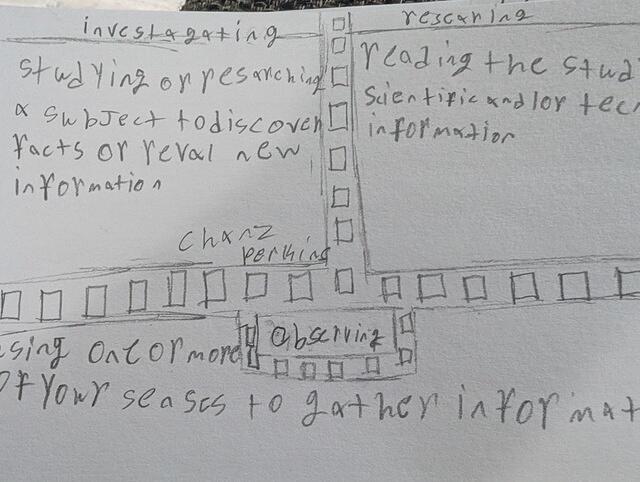 investagating
studying or resarching
a subject to discover
facts or reval new
information
chanz
perking
rescaring
reading the stud
scientific and/or tec
information
observing
sing onc or more
of your senses to gather informat